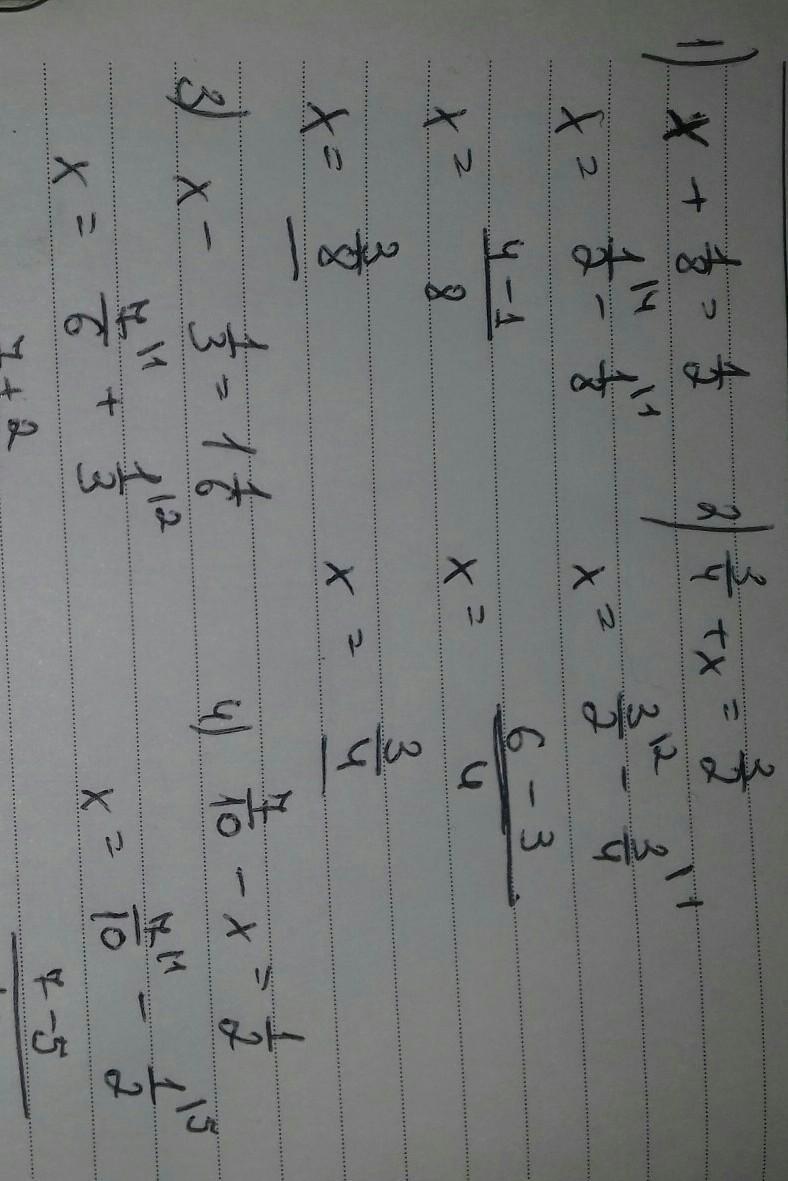 1) x + 1/8 = 1/2
x = 1/2\4 - 1/8\1
x = (4-1)/8
x = 3/8
2) 3/4 + x = 3/2
x = 3/2\2 - 3/4\1
x = (6-3)/4
x = 3/4
3) x - 1/3 = 1 1/6
x = 7/6\1 + 1/3\2
7+2
4) 7/10 - x = 1/2
x = 7/10\1 - 1/2\5
7-5